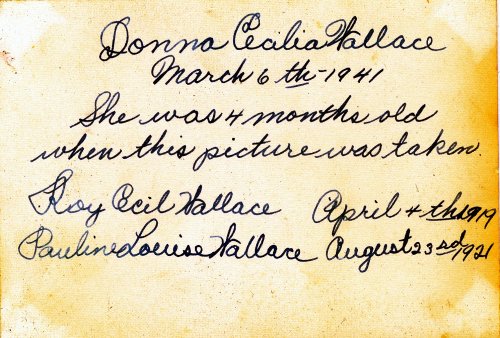 Donna Cecilia Wallace
March 6 th-1941
She was 4 months old
when this picture was taken.
Roy Cecil Wallace April 4 th 1919
Pauline Louise Wallace August 23 rd 1921